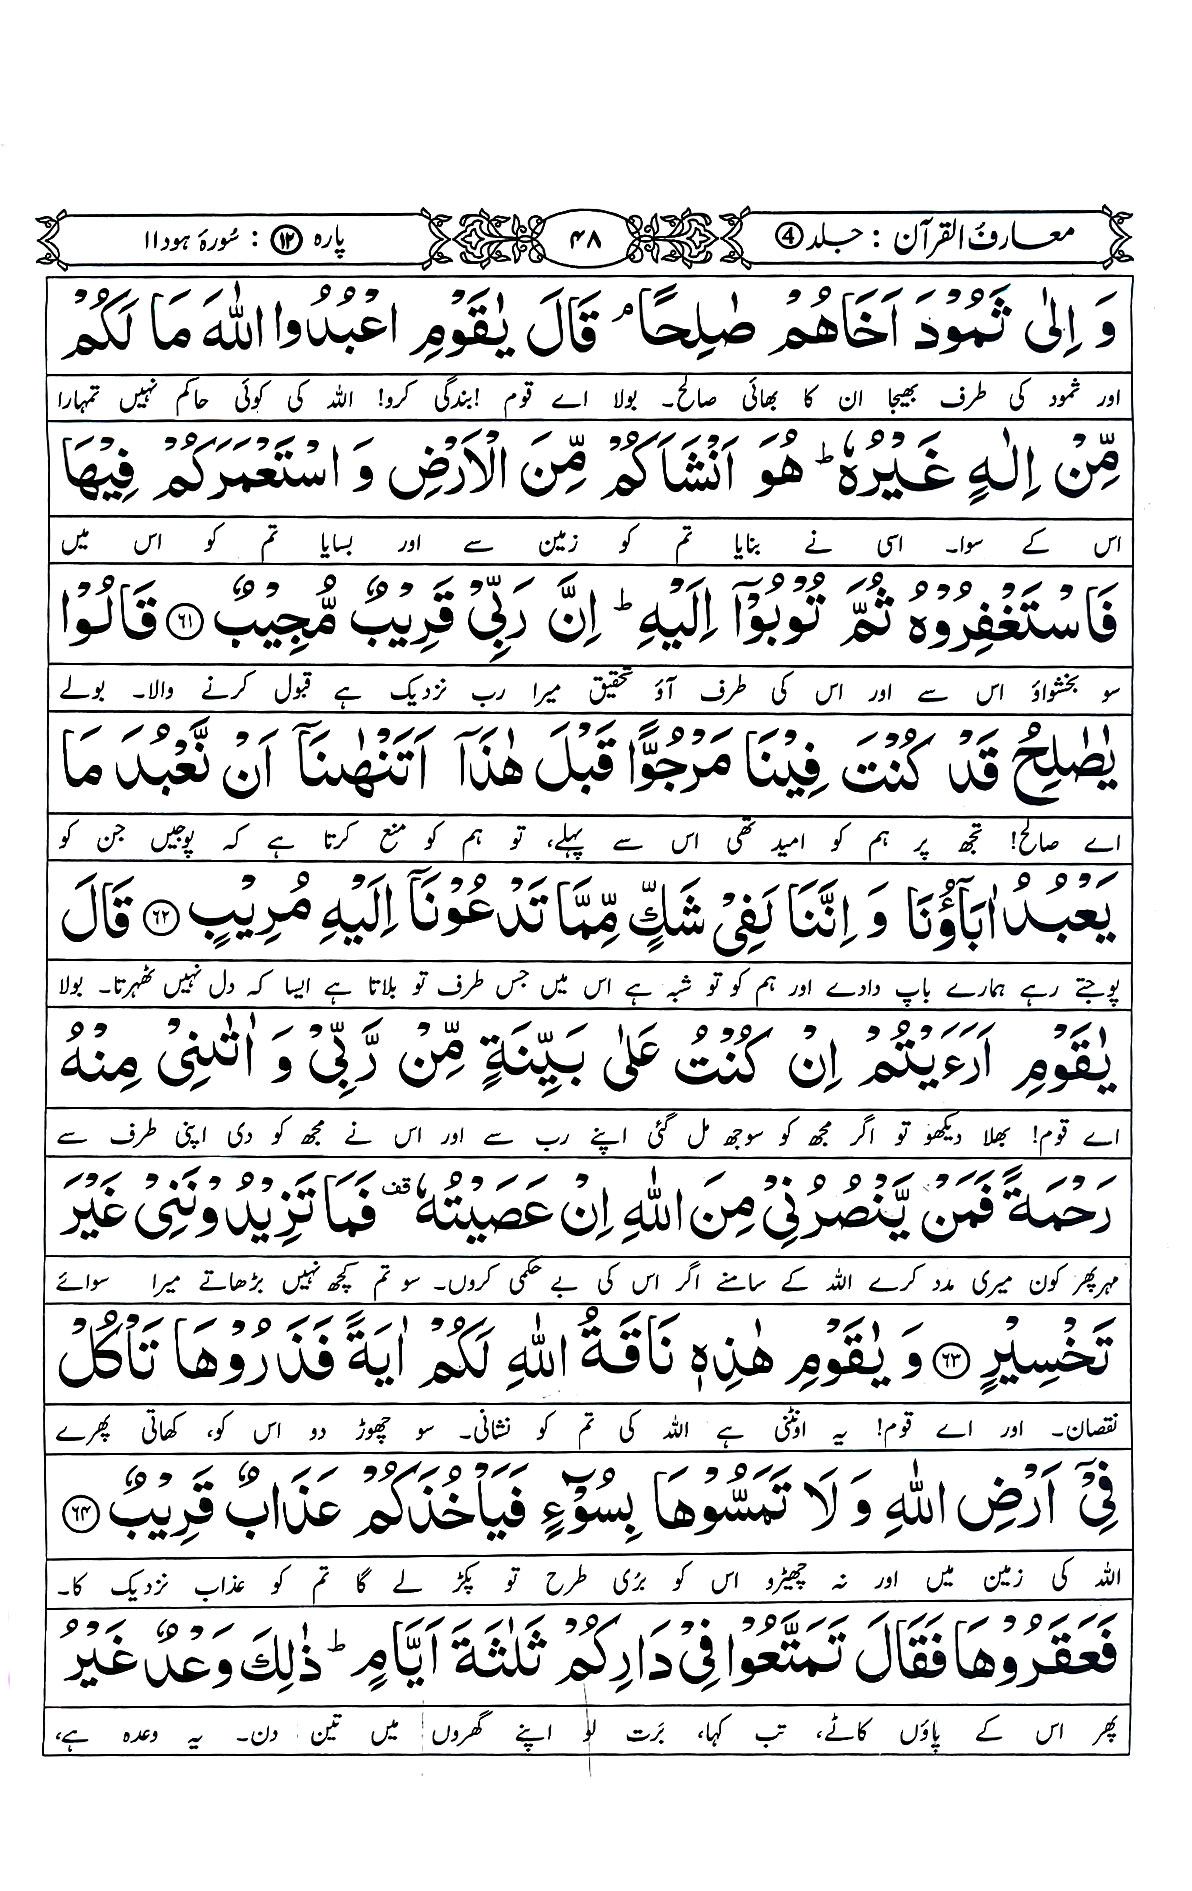 معارف القرآن : جلد ④
۴۸
پارہ ⑫ : سُورۂ ہود ۱۱
وَ اِلٰى ثَمُوْدَ اَخَاهُمْ صٰلِحًا ۘ قَالَ يٰقَوْمِ اعْبُدُوا اللّٰهَ مَا لَكُمْ
اور ثمود کی طرف بھیجا ان کا بھائی صالح۔ بولا اے قوم !بندگی کرو! اللہ کی کوئی حاکم نہیں تمہارا
مِّنْ اِلٰهٍ غَيْرُهٗ ؕ هُوَ اَنْشَاَكُمْ مِّنَ الْاَرْضِ وَ اسْتَعْمَرَكُمْ فِيْهَا
اس کے سوا۔ اسی نے بنایا تم کو زمین سے اور بسایا تم کو اس میں
فَاسْتَغْفِرُوْهُ ثُمَّ تُوْبُوْۤا اِلَيْهِ ؕ اِنَّ رَبِّيْ قَرِيْبٌ مُّجِيْبٌ ﴿۶۱﴾ قَالُوْا
سو بخشواؤ اس سے اور اس کی طرف آؤ تحقیق میرا رب نزدیک ہے قبول کرنے والا۔ بولے
يٰصٰلِحُ قَدْ كُنْتَ فِيْنَا مَرْجُوًّا قَبْلَ هٰذَاۤ اَتَنْهٰىنَاۤ اَنْ نَّعْبُدَ مَا
اے صالح! تجھ پر ہم کو امید تھی اس سے پہلے، تو ہم کو منع کرتا ہے کہ پوجیں جن کو
يَعْبُدُ اٰبَآؤُنَا وَ اِنَّنَا لَفِيْ شَكٍّ مِّمَّا تَدْعُوْنَاۤ اِلَيْهِ مُرِيْبٍ ﴿۶۲﴾ قَالَ
پوجتے رہے ہمارے باپ دادے اور ہم کو تو شبہ ہے اس میں جس طرف تو بلاتا ہے ایسا کہ دل نہیں ٹھہرتا۔ بولا
يٰقَوْمِ اَرَءَيْتُمْ اِنْ كُنْتُ عَلٰى بَيِّنَةٍ مِّنْ رَّبِّيْ وَ اٰتٰىنِيْ مِنْهُ
اے قوم! بھلا دیکھو تو اگر مجھ کو سوجھ مل گئی اپنے رب سے اور اس نے مجھ کو دی اپنی طرف سے
رَحْمَةً فَمَنْ يَّنْصُرُنِيْ مِنَ اللّٰهِ اِنْ عَصَيْتُهٗ ۫قف فَمَا تَزِيْدُوْنَنِيْ غَيْرَ
مہر پھر کون میری مدد کرے اللہ کے سامنے اگر اس کی بے حکمی کروں۔ سو تم کچھ نہیں بڑھاتے میرا سوائے
تَخْسِيْرٍ ﴿۶۳﴾ وَ يٰقَوْمِ هٰذِهٖ نَاقَةُ اللّٰهِ لَكُمْ اٰيَةً فَذَرُوْهَا تَاْكُلْ
نقصان۔ اور اے قوم! یہ اونٹنی ہے اللہ کی تم کو نشانی۔ سو چھوڑ دو اس کو، کھاتی پھرے
فِيْۤ اَرْضِ اللّٰهِ وَ لَا تَمَسُّوْهَا بِسُوْٓءٍ فَيَاْخُذَكُمْ عَذَابٌ قَرِيْبٌ ﴿۶۴﴾
اللہ کی زمین میں اور نہ چھیڑو اس کو بڑی طرح تو پکڑ لے گا تم کو عذاب نزدیک کا۔
فَعَقَرُوْهَا فَقَالَ تَمَتَّعُوْا فِيْ دَارِكُمْ ثَلٰثَةَ اَيَّامٍ ؕ ذٰلِكَ وَعْدٌ غَيْرُ
پھر اس کے پاؤں کاٹے، تب کہا، بَرت لو اپنے گھروں میں تین دن۔ یہ وعدہ ہے،